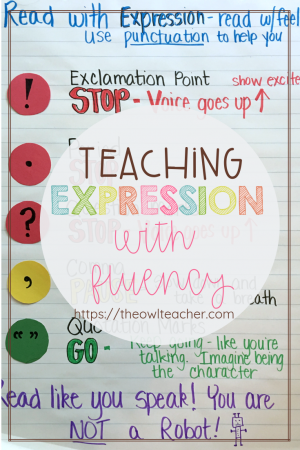 Read with Expression - read w/feel
use punctuation to help you
! Exclamation Point show excite
STOP - Voice goes up ↑
.
TEACHING
EXPRESSION
? STOP goes up ↑
with
fluency
, and
breath
https://theowlteacher.com
" " Quotation Marks
GO - Keep going - like you're
talking. Imagine being
the character
Read like you speak! You are
NOT a Robot!